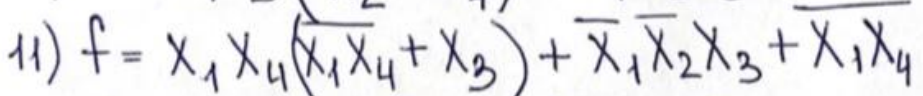 11) f = X₁X₄(X̅₁X̅₄ + X₃) + X̅₁X̅₂X₃ + X̅₁X̅₄